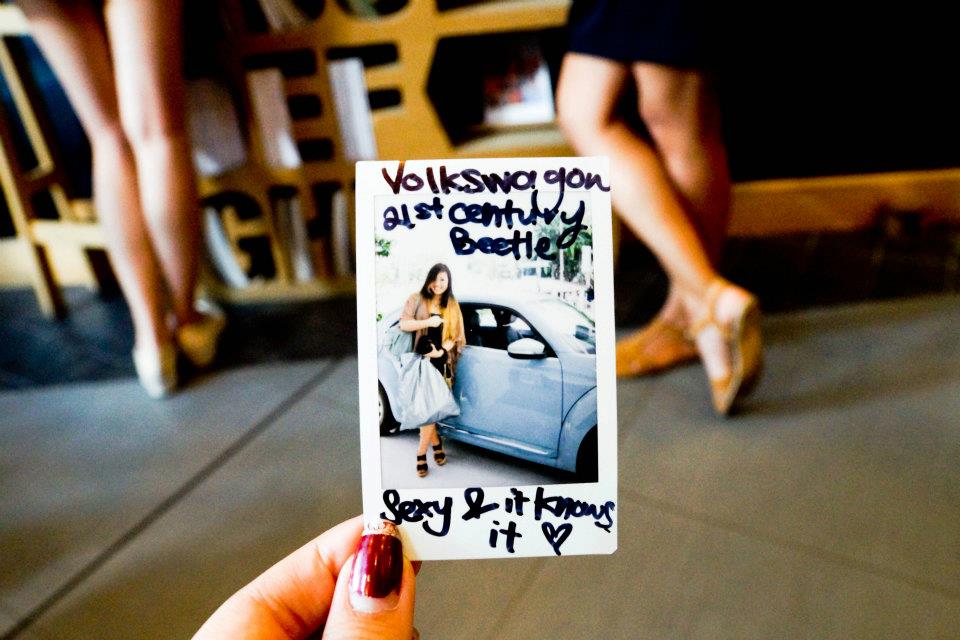 Volkswagon
21st century
Beetle
Sexy & it knows
it ♡